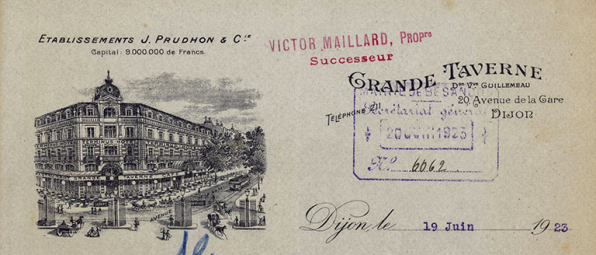 ETABLISSEMENTS J. PRUDHON & Cie
Capital: 9.000.000 de Francs.
VICTOR MAILLARD, Propre
Successeur
GRANDE TAVERNE
Dr Vve GUILLEMEAU
20 Avenue de la Gare
TÉLÉPHONE
DIJON
MAIRIE DE BESAN
Secrétariat général
20 JUIN 1923
No 6062
Dijon, le 19 Juin 1923